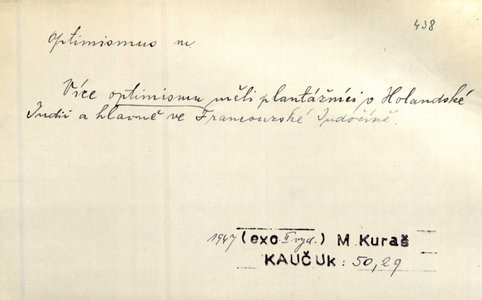 438
Optimismus m.
Více optimismu měli plantážníci v Holandské
Indii a hlavně ve Francouzské Indočíně.
1947 (exc II vyd.) M. Kuraš
KAUČUK: 50,29